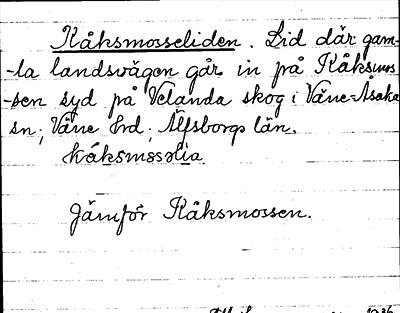 Kåksmosseliden. Lid där gam-
-la landsvägen går in på Kåksmos
-sen syd på Velanda skog i Väne-Åsaka
sn; Väne hrd; Älfsborgs län.
kåksmosəlia
Jämför Kåksmossen.